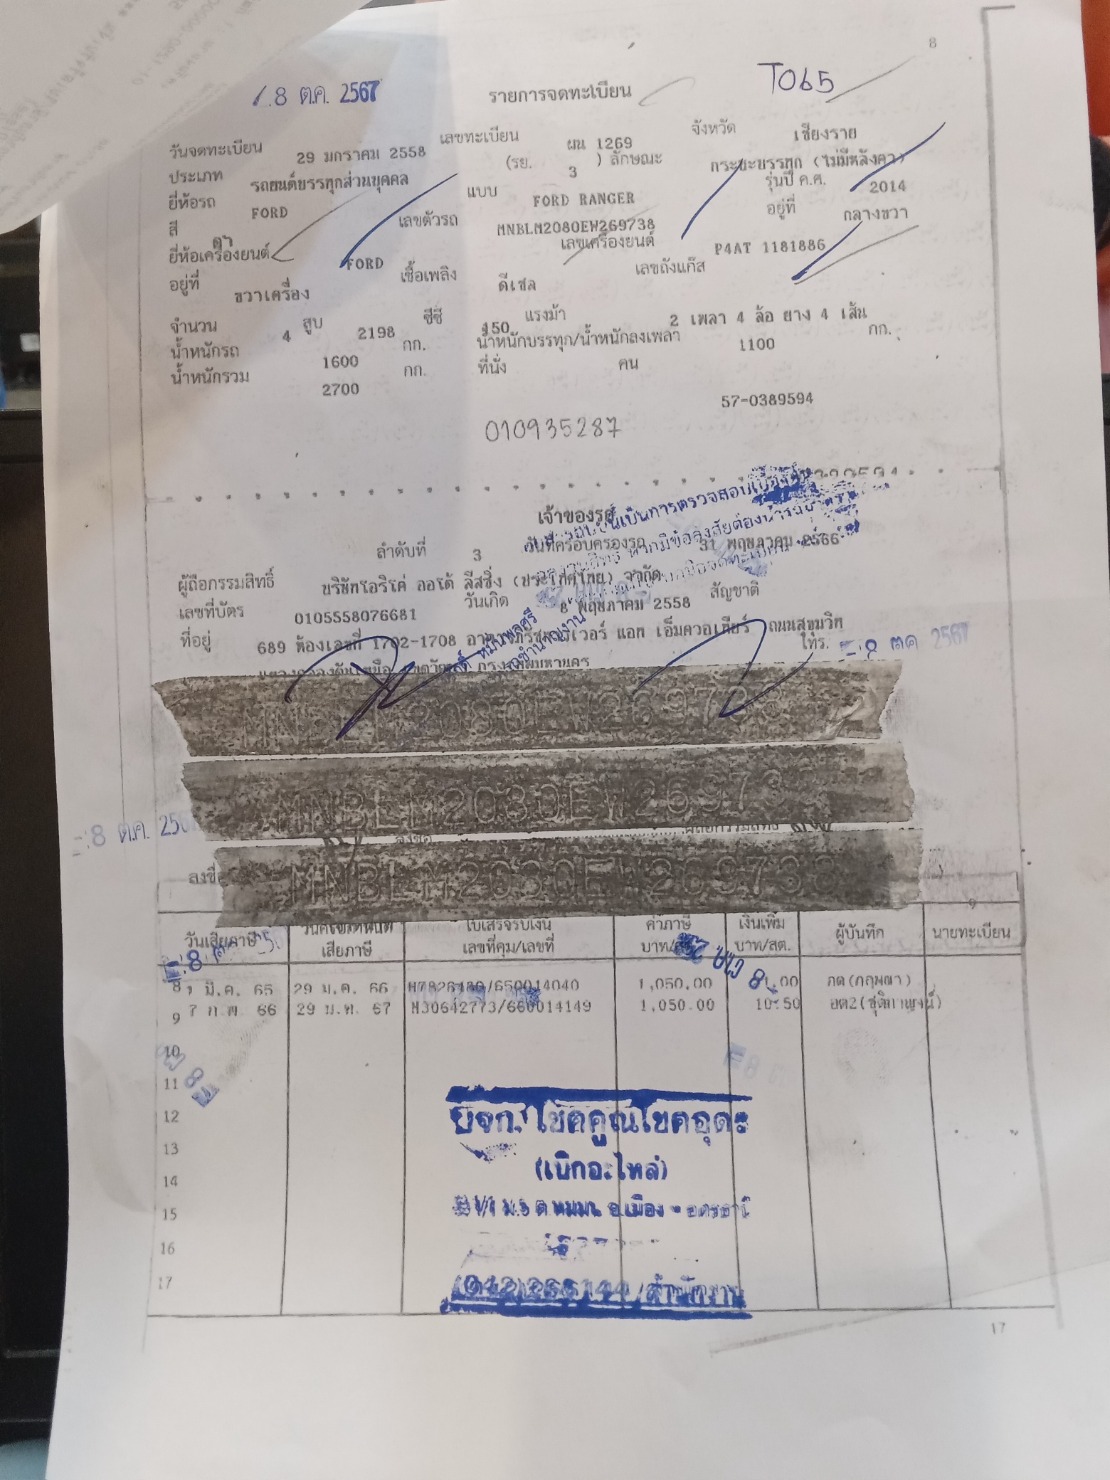 8
-8 ต.ค. 2567
รายการจดทะเบียน
T065
วันจดทะเบียน 29 มกราคม 2558 เลขทะเบียน ผน 1269 จังหวัด เชียงราย
ประเภท รถยนต์บรรทุกส่วนบุคคล (รย. 3 ) ลักษณะ กระบะบรรทุก (ไม่มีหลังคา)
ยี่ห้อรถ FORD แบบ FORD RANGER รุ่นปี ค.ศ. 2014
สี ดำ เลขตัวรถ MNBLM2080EW269738 อยู่ที่ กลางขวา
ยี่ห้อเครื่องยนต์ FORD เลขเครื่องยนต์ P4AT 1181886
อยู่ที่ ขวาเครื่อง เชื้อเพลิง ดีเซล เลขถังแก๊ส
จำนวน 4 สูบ 2198 ซีซี 150 แรงม้า 2 เพลา 4 ล้อ ยาง 4 เส้น
น้ำหนักรถ 1600 กก. น้ำหนักบรรทุก/น้ำหนักลงเพลา 1100 กก.
น้ำหนักรวม 2700 กก. ที่นั่ง คน
57-0389594
010935287
เจ้าของรถ
ลำดับที่ 3 วันที่ครอบครองรถ 31 พฤษภาคม 2566
ผู้ถือกรรมสิทธิ์ บริษัทโอริโค่ ออโต้ ลีสซิ่ง (ประเทศไทย) จำกัด
เลขที่บัตร 0105558076681 วันเกิด 8 พฤษภาคม 2558 สัญชาติ
ที่อยู่ 689 ห้องเลขที่ 1702-1708 แอท เอ็มควอเทียร์ ถนนสุขุมวิท
โทร. -8 ต.ค. 2567
MNBLM2080EW269738
MNBLM2080EW26973
-8 ต.ค. 256
ลงชื่อ
MNBLM2080EW269738
9
วันเสียภาษี เสียภาษี ใบเสร็จรับเงิน เลขที่คุม/เลขที่ ค่าภาษี บาท/สต. เงินเพิ่ม บาท/สต. ผู้บันทึก นายทะเบียน
8 มี.ค. 65 29 ม.ค. 66 /650014040 1,050.00 ภด(กฤษณา)
9 7 ก.พ. 66 29 ม.ค. 67 M30642773/660014149 1,050.00 10.50
10
11
12
หจก. โชคคูณโชคอุดร
13
(เบิกอะไหล่)
14
15
อ.เมือง
16
17
(042)266144/สำนักงาน
17